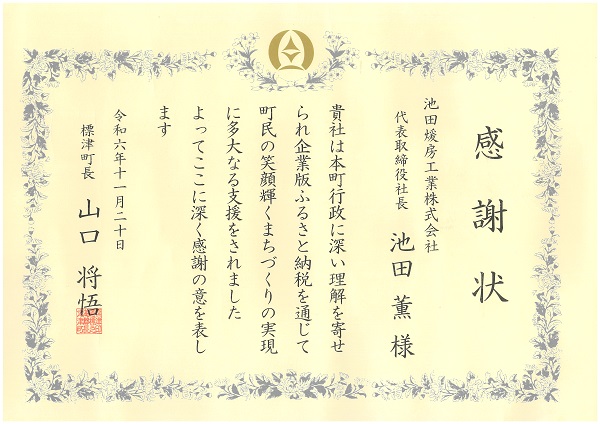 感謝状
池田煖房工業株式会社
代表取締役社長 池田薫様
貴社は本町行政に深い理解を寄せ
られ企業版ふるさと納税を通じて
町民の笑顔輝くまちづくりの実現
に多大なる支援をされました
よってここに深く感謝の意を表し
ます
令和六年十一月二十日
標津町長 山口将悟